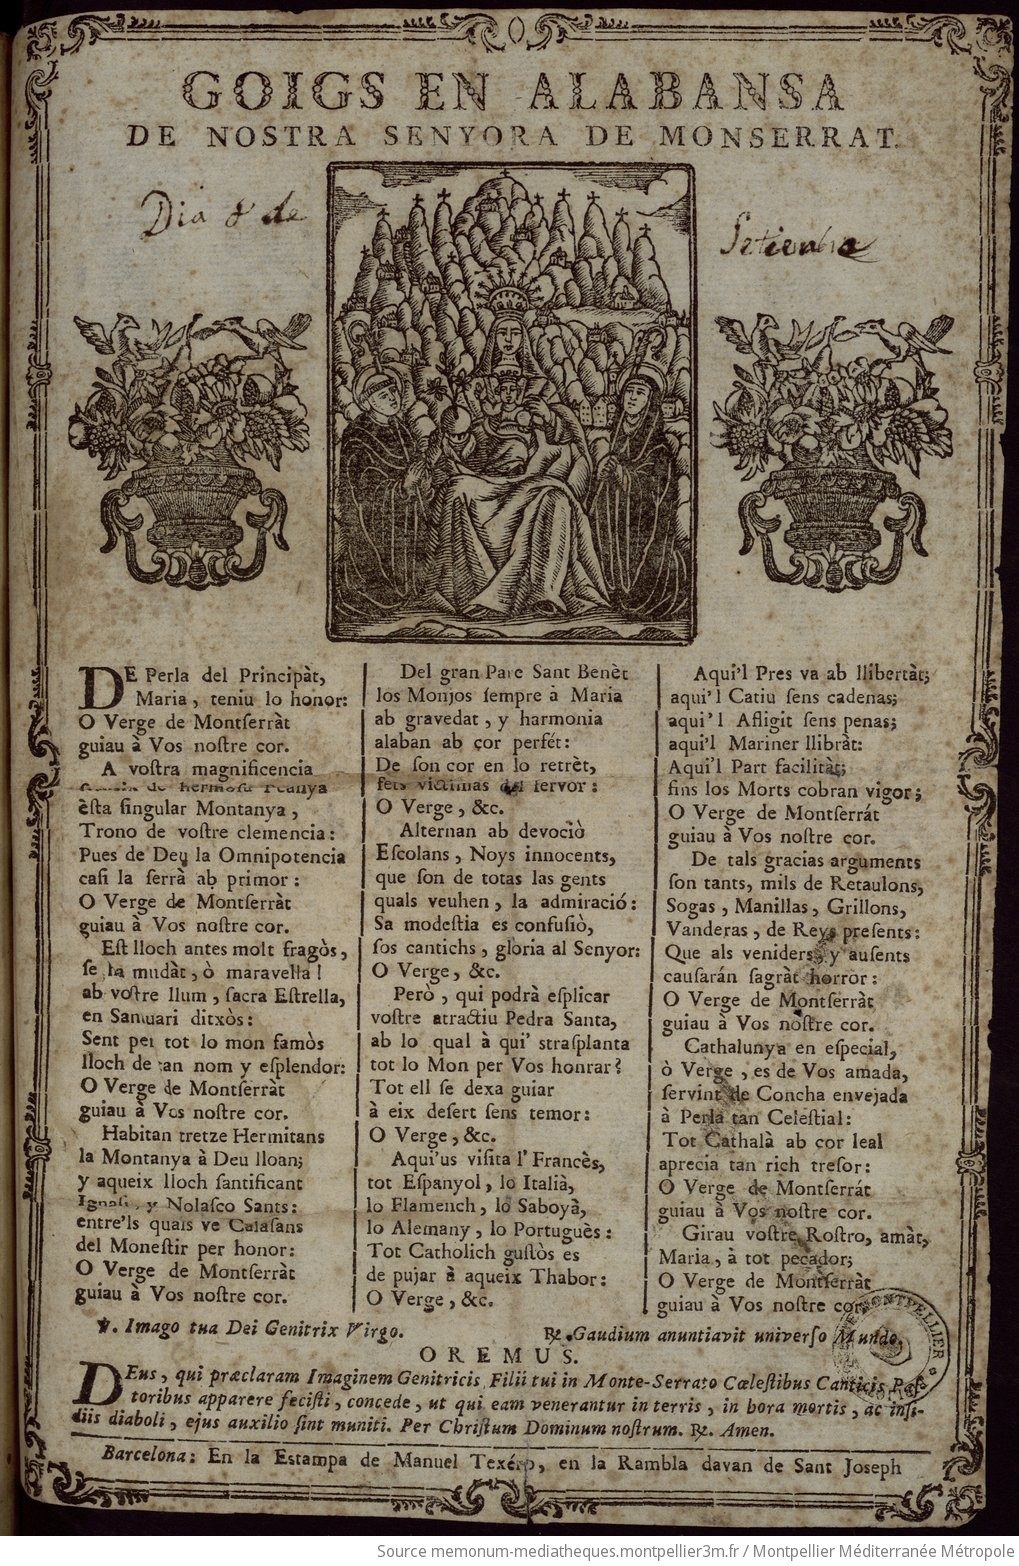 GOIGS EN ALABANSA
DE NOSTRA SENYORA DE MONSERRAT.
Dia 8 de
Setiembre
DE Perla del Principàt,
Maria, teniu lo honor:
O Verge de Montſerràt
guiau à Vos noſtre cor.
A voſtra magnificencia
de hermoſa
èſta ſingular Montanya,
Trono de voſtre clemencia:
Pues de Deu la Omnipotencia
caſi la ſerrà ab primor:
O Verge de Montſerràt
guiau à Vos noſtre cor.
Eſt lloch antes molt fragòs,
ſe ha mudàt, ò maravella!
ab voſtre llum, ſacra Eſtrella,
en Santuari ditxòs:
Sent per tot lo mon famòs
lloch de tan nom y eſplendor:
O Verge de Montſerràt
guiau à Vos noſtre cor.
Habitan tretze Hermitans
la Montanya à Deu lloan;
y aqueix lloch ſantificant
Ignaſi, y Nolaſco Sants:
entre'ls quais ve Calaſans
del Moneſtir per honor:
O Verge de Montſerràt
guiau à Vos noſtre cor.
Del gran Pare Sant Benèt
los Monjos ſempre à Maria
ab gravedat, y harmonia
alaban ab cor perfét:
De ſon cor en lo retrèt,
fets victimas del fervor:
O Verge, &c.
Alternan ab devociò
Eſcolans, Noys innocents,
que ſon de totas las gents
quals veuhen, la admiració:
Sa modeſtia es confuſiò,
ſos cantichs, glòria al Senyor:
O Verge, &c.
Però, qui podrà eſplicar
voſtre atractiu Pedra Santa,
ab lo qual à qui' straſplanta
tot lo Mon per Vos honrar?
Tot ell ſe dexa guiar
à eix deſert ſens temor:
O Verge, &c.
Aqui'us viſita l' Francès,
tot Eſpanyol, lo Italià,
lo Flamench, lo Saboyà,
lo Alemany, lo Portuguès:
Tot Catholich guſtòs es
de pujar à aqueix Thabor:
O Verge, &c.
Aqui'l Pres va ab llibertàt;
aqui'l Catiu ſens cadenas;
aqui'l Afligit ſens penas;
aqui'l Mariner llibràt:
Aqui'l Part facilitàt;
fins los Morts cobran vigor;
O Verge de Montſerrát
guiau à Vos noſtre cor.
De tals gracias arguments
ſon tants, mils de Retaulons,
Sogas, Manillas, Grillons,
Vanderas, de Reys preſents:
Que als veniders, y auſents
cauſarán ſagràt horror:
O Verge de Montſerràt
guiau à Vos noſtre cor.
Cathalunya en eſpecial,
ò Verge, es de Vos amada,
ſervint de Concha envejada
à Perla tan Celeſtial:
Tot Cathalà ab cor leal
aprecia tan rich treſor:
O Verge de Montſerrát
guiau à Vos noſtre cor.
Girau voſtre Roſtro, amàt,
Maria, à tot pecador;
O Verge de Montſerràt
guiau à Vos noſtre cor.
℣. Imago tua Dei Genitrix Virgo.
℟. Gaudium anuntiavit univerſo Mundo.
OREMUS.
DEus, qui præclaram Imaginem Genitricis Filii tui in Monte-Serrato Cœleſtibus Canticis Paſ-
toribus apparere feciſti, concede, ut qui eam venerantur in terris, in hora mortis, ac inſi-
diis diaboli, ejus auxilio ſint muniti. Per Chriſtum Dominum noſtrum. ℟. Amen.
Barcelona: En la Estampa de Manuel Texéro, en la Rambla davan de Sant Joseph
MONTPELLIER
Source memonum-mediatheques.montpellier3m.fr / Montpellier Méditerranée Métropole